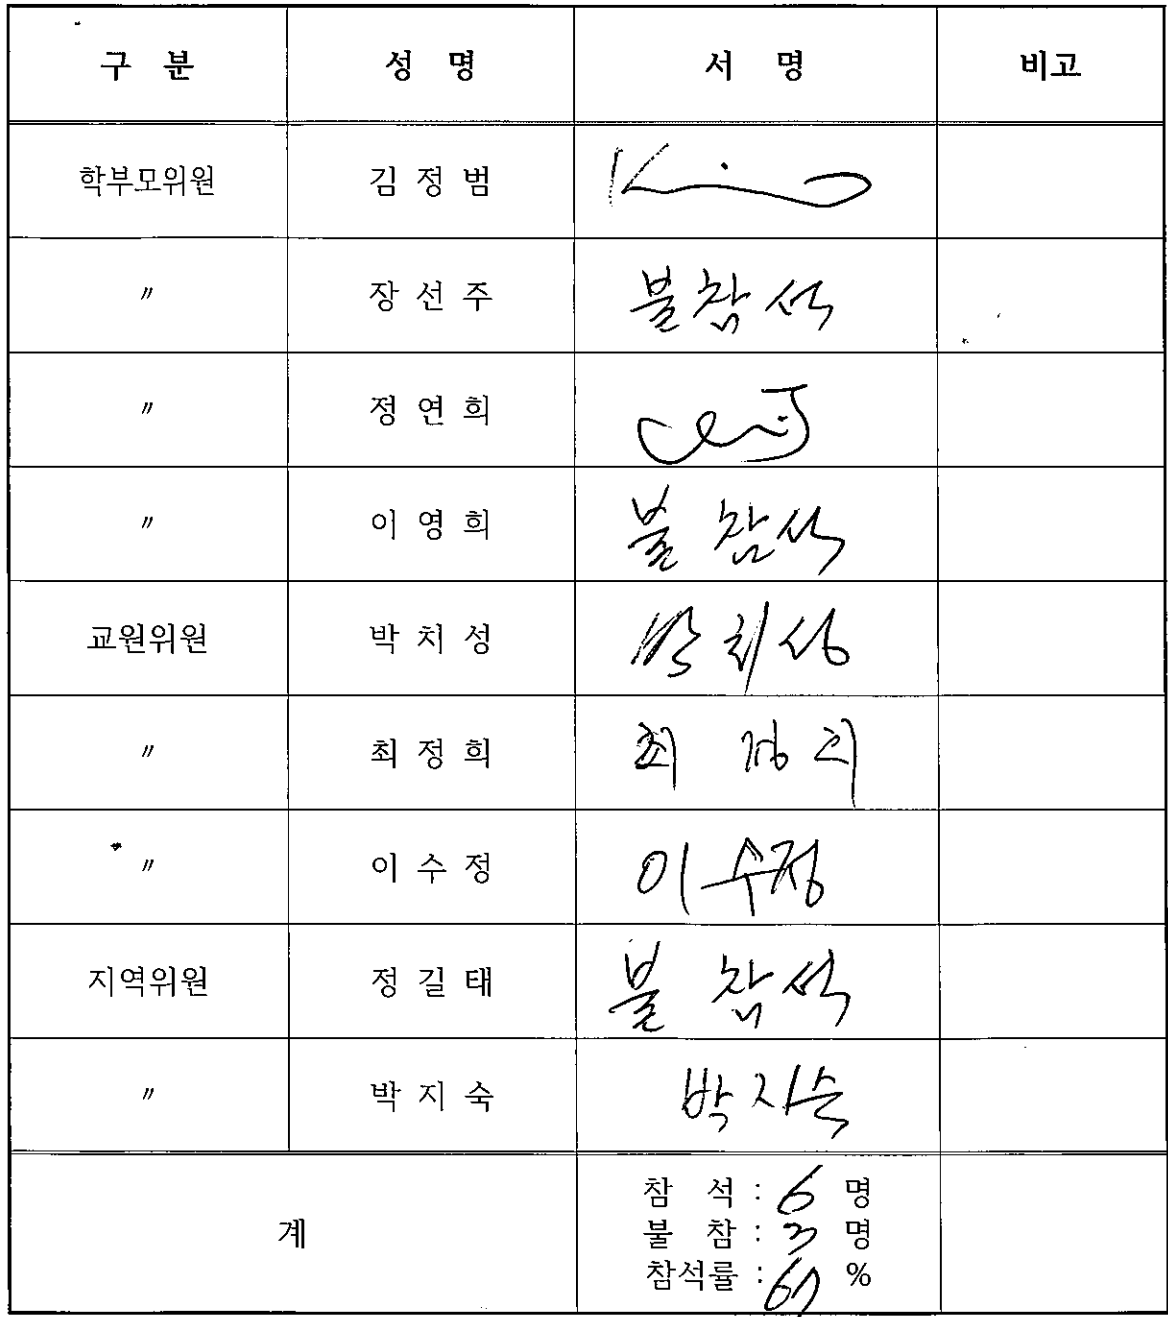 구 분 성 명 서 명 비고
학부모위원 김 정 범
〃 장 선 주 불참석
〃 정 연 희
〃 이 영 희 불 참석
교원위원 박 치 성 박치성
〃 최 정 희 최 정 희
〃 이 수 정 이수정
지역위원 정 길 태 불 참석
〃 박 지 숙 박지숙
계 참 석 : 6 명
불 참 : 3 명
참석률 : 67 %